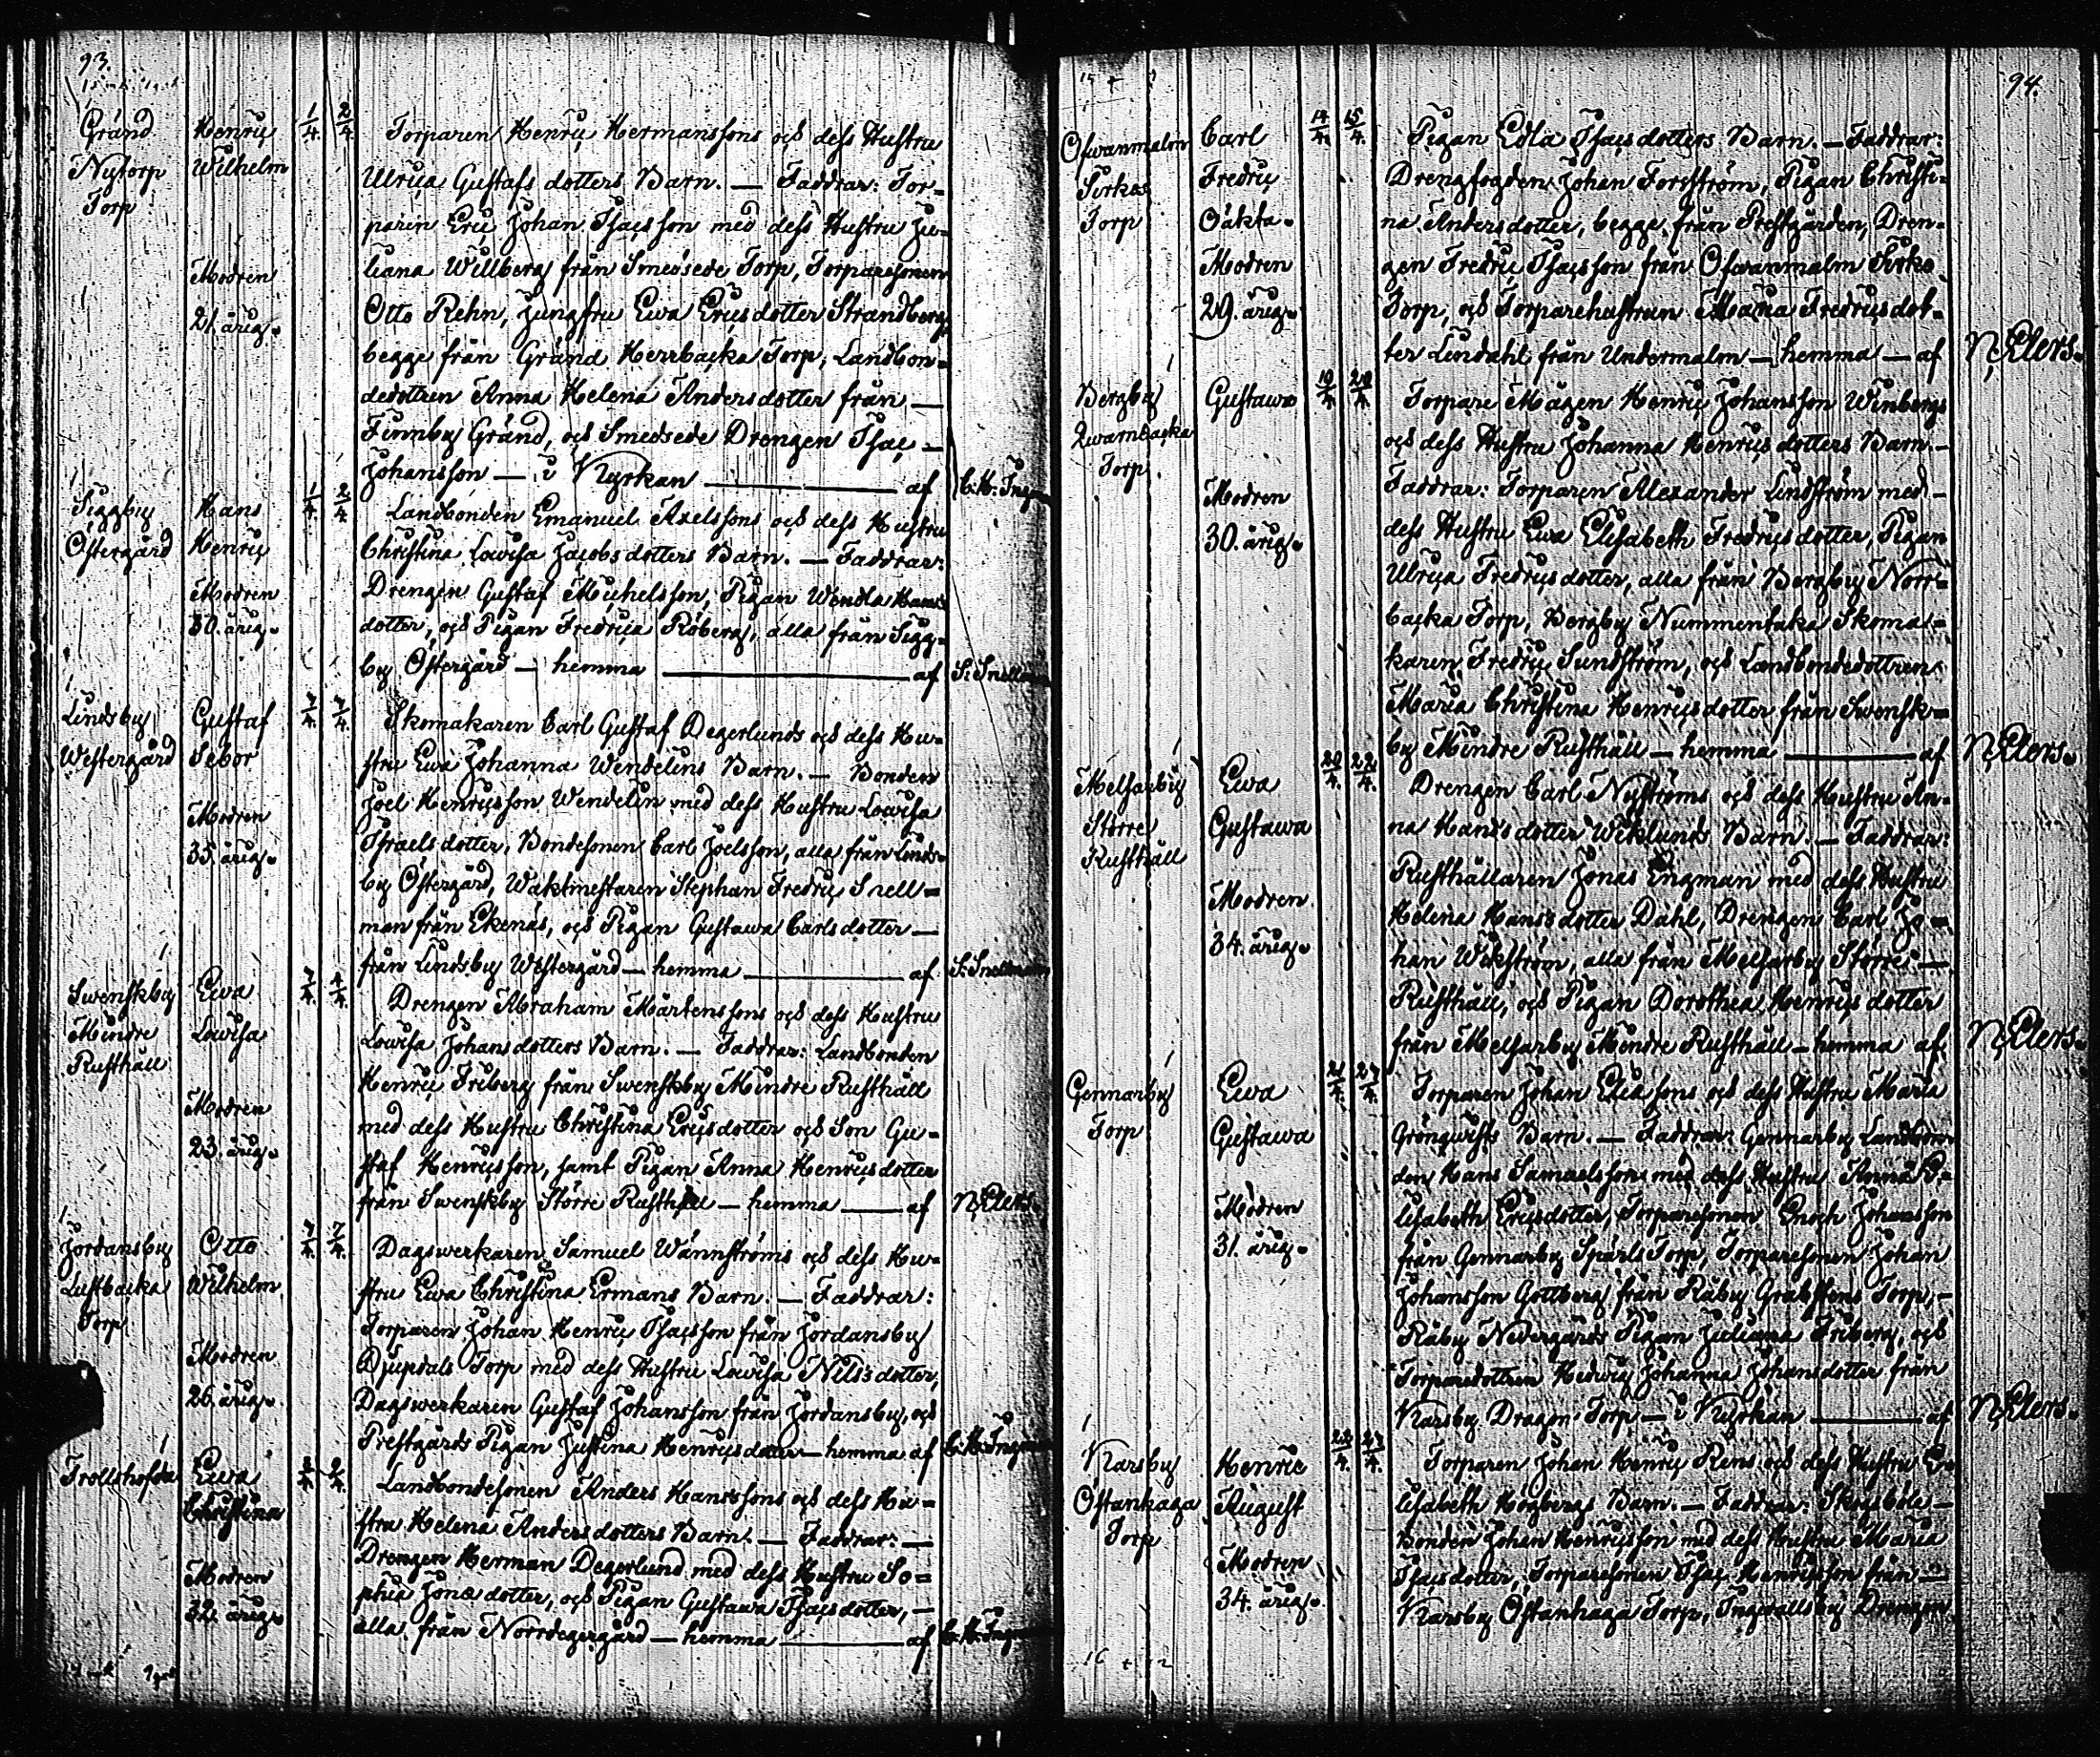 93.
Gränd
Nytorp
Torp
Henric
Wilhelm
Modren
21. årig.
1/4.
2/4.
Torparen Henric Hermanssons och dess Hustru
Ulrica Gustafs dotters Barn. — Faddrar: Tor-
paren Eric Johan Isacsson med dess Hustru Ju-
liana Willberg från Smedsede Torp, Torparesonen
Otto Rehn, Jungfru Ewa Ericsdotter Strandberg,
begge från Gränd Herrbacka Torp, Landbon-
dedottren Anna Helena Andersdotter från —
Finnby Gränd, och Smedsede Drengen Isac —
Johansson — i Kyrkan — af
Siggby
Östergård
Hans
Henric
Modren
30. årig.
1/4.
2/4.
Landbonden Emanuel Axelssons och dess Hustru
Christina Lowisa Jacobs dotters Barn. — Faddrar:
Drengen Gustaf Michelsson, Pigan Wendla Hans
dotter, och Pigan Fredrica Röberg, alla från Sigg-
by Östergård — hemma — af S: Snellman
Lindsby
Westergård
Gustaf
Sebor
Modren
35. årig.
7/4.
Skomakaren Carl Gustaf Degerlunds och dess Hu-
stru Ewa Johanna Wendelins Barn. — Bonden
Joel Henricsson Wendelin med dess Hustru Lowisa
Israels dotter, Bondesonen Carl Joelsson, alla från Linds-
by Östergård, Waktmestaren Stephan Fredric Snell-
man från Ekenäs, och Pigan Gustawa Carls dotter —
från Lindsby Westergård — hemma — af S: Snellman
Swenskby
Mindre
Rusthåll
Ewa
Lowisa
Modren
23. årig.
7/4.
Drengen Abraham Mårtenssons och dess Hustru
Lowisa Johans dotters Barn. — Faddrar: Landbonden
Henric Friberg från Swenskby Mindre Rusthåll
med dess Hustru Christina Ericsdotter och Son Gu-
staf Henricsson, samt Pigan Anna Henricsdotter
från Swenskby Större Rusthåll — hemma — af N, Elers.
Jordansby
Lustbacka
Torp
Otto
Wilhelm
Modren
26. årig.
7/4.
7/4.
Dagswerkaren Samuel Wännströms och dess Hu-
stru Ewa Christina Ermans Barn. — Faddrar:
Torparen Johan Henric Isacsson från Jordansby
Djupdals Torp med dess Hustru Lowisa Nils's dotter,
Dagswerkaren Gustaf Johansson från Jordansby, och
Prestgårds Pigan Justina Henricsdotter — hemma af
Trollshofda
Ewa
Christina
Modren
32. årig.
Landbondesonen Anders Hanssons och dess Hu-
stru Helena Anders dotters Barn. — Faddrar: —
Drengen Herman Degerlund med dess Hustru So-
phia Jonæ dotter, och Pigan Gustawa Isacs dotter, —
alla från Norrdegergård — hemma — af
94.
Ofwanmalm
Torp
Carl
Fredric
Oäkta.
Modren
29. årig.
14/4.
15/4.
Pigan Edla Isacs dotters Barn. — Faddrar:
Drengfogden Johan Forsström, Pigan Christi-
na Anders dotter, begge från Prestgården, Dren-
gen Fredric Isacsson från Ofwanmalm
Torp, och Torparehustrun Maria Fredricsdot-
ter Lindahl från Undermalm — hemma — af N, Elers.
Bergby
Qwarnbacka
Torp.
Gustawa
Modren
30. årig.
Torpare Mågen Henric Johansson Winbergs
och dess Hustru Johanna Henrics dotters Barn. —
Faddrar: Torparen Alexander Lindström med —
dess Hustru Ewa Elisabeth Fredrics dotter, Pigan
Ulrica Fredrics dotter, alla från Bergby Norr-
backa Torp, Bergby Nummentaka Skoma-
karen Fredric Sundström, och Landbondedottren
Maria Christina Henrics dotter från Swensk-
by Mindre Rusthåll — hemma — af N, Elers.
Melsarby
Större
Rusthåll
Ewa
Gustawa
Modren
34. årig.
20/4.
22/4.
Drengen Carl Nyströms och dess Hustru An-
na Hans's dotter Wiklunds Barn. — Faddrar:
Rusthållaren Jonas Engman med dess Hustru
Helena Hans's dotter Dahl, Drengen Carl Jo-
han Wikström, alla från Melsarby Större —
Rusthåll, och Pigan Dorothea Henrics dotter
från Melsarby Mindre Rusthåll — hemma af N, Elers.
Gennarby
Torp
Ewa
Gustawa
Modren
31. årig.
21/4.
27/4.
Torparen Johan Eliassons och dess Hustru Maria
Grönqwists Barn. — Faddrar: Gennarby Landbon-
den Hans Samuelsson med dess Hustru Anna E-
lisabeth Ericsdotter, Torparesonen Enoch Johansson
från Gennarby Torp, Torparesonen Johan
Johansson Gottberg från Råby Grabstens Torp, —
Råby Nedergårds Pigan Juliana Friberg, och
Torparedottren Hedwig Johanna Johansdotter från
Karsby Dragon Torp — i Kyrkan — af N, Elers.
Karsby
Östanhaga
Torp
Henric
August
Modren
34. årig.
22/4.
27/4.
Torparen Johan Henric Rens och dess Hustru E-
lisabeth Högbergs Barn. — Faddrar: Skogsböle —
Bonden Johan Henricsson med dess Hustru Maria
Isacsdotter, Torparesonen Isac Henricsson från —
Karsby Östanhaga Torp, Ingwallsby Drengen